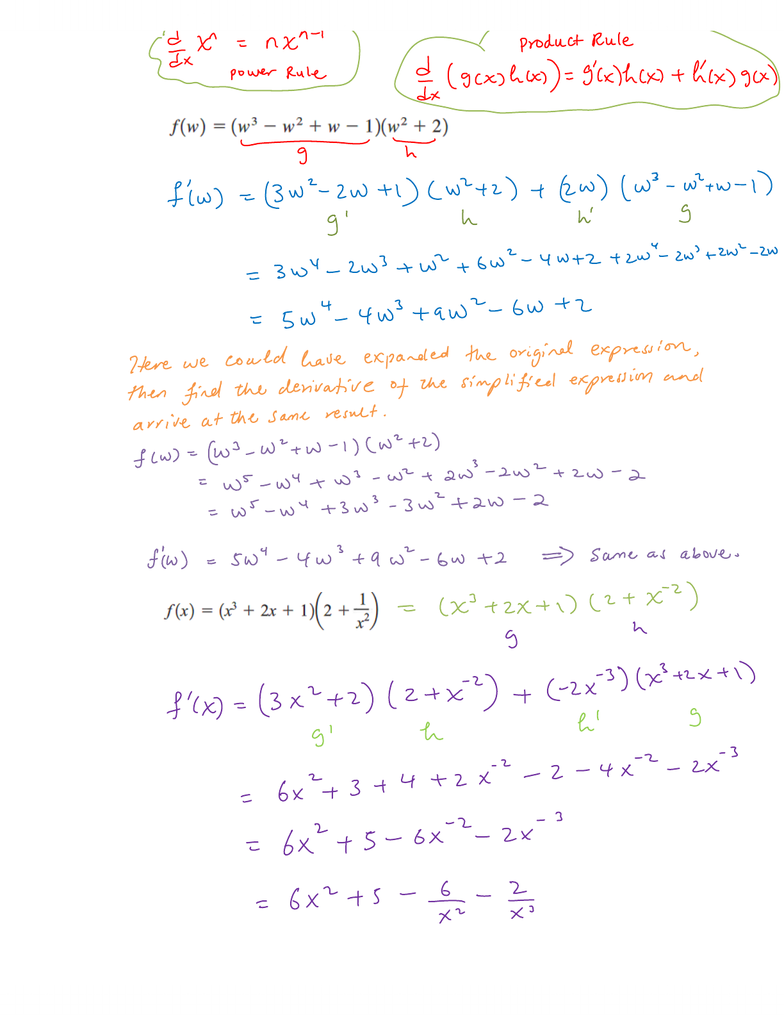 d/dx xⁿ = nxⁿ⁻¹
power Rule
Product Rule
d/dx (g(x)h(x)) = g'(x)h(x) + h'(x) g(x)
f(w) = (w³ − w² + w − 1)(w² + 2)
g h
f'(w) = (3w² − 2w + 1) (w² + 2) + (2w) (w³ − w² + w − 1)
g' h h' g
= 3w⁴ − 2w³ + w² + 6w² − 4w + 2 + 2w⁴ − 2w³ + 2w² − 2w
= 5w⁴ − 4w³ + 9w² − 6w + 2
Here we could have expanded the original expression,
then find the derivative of the simplified expression and
arrive at the same result.
f(w) = (w³ − w² + w − 1) (w² + 2)
= w⁵ − w⁴ + w³ − w² + 2w³ − 2w² + 2w − 2
= w⁵ − w⁴ + 3w³ − 3w² + 2w − 2
f'(w) = 5w⁴ − 4w³ + 9w² − 6w + 2 ⟹ same as above.
f(x) = (x³ + 2x + 1)(2 + 1/x²) = (x³ + 2x + 1) (2 + x⁻²)
g h
f'(x) = (3x² + 2) (2 + x⁻²) + (−2x⁻³) (x³ + 2x + 1)
g' h h' g
= 6x² + 3 + 4 + 2x⁻² − 2 − 4x⁻² − 2x⁻³
= 6x² + 5 − 6x⁻² − 2x⁻³
= 6x² + 5 − 6/x² − 2/x³